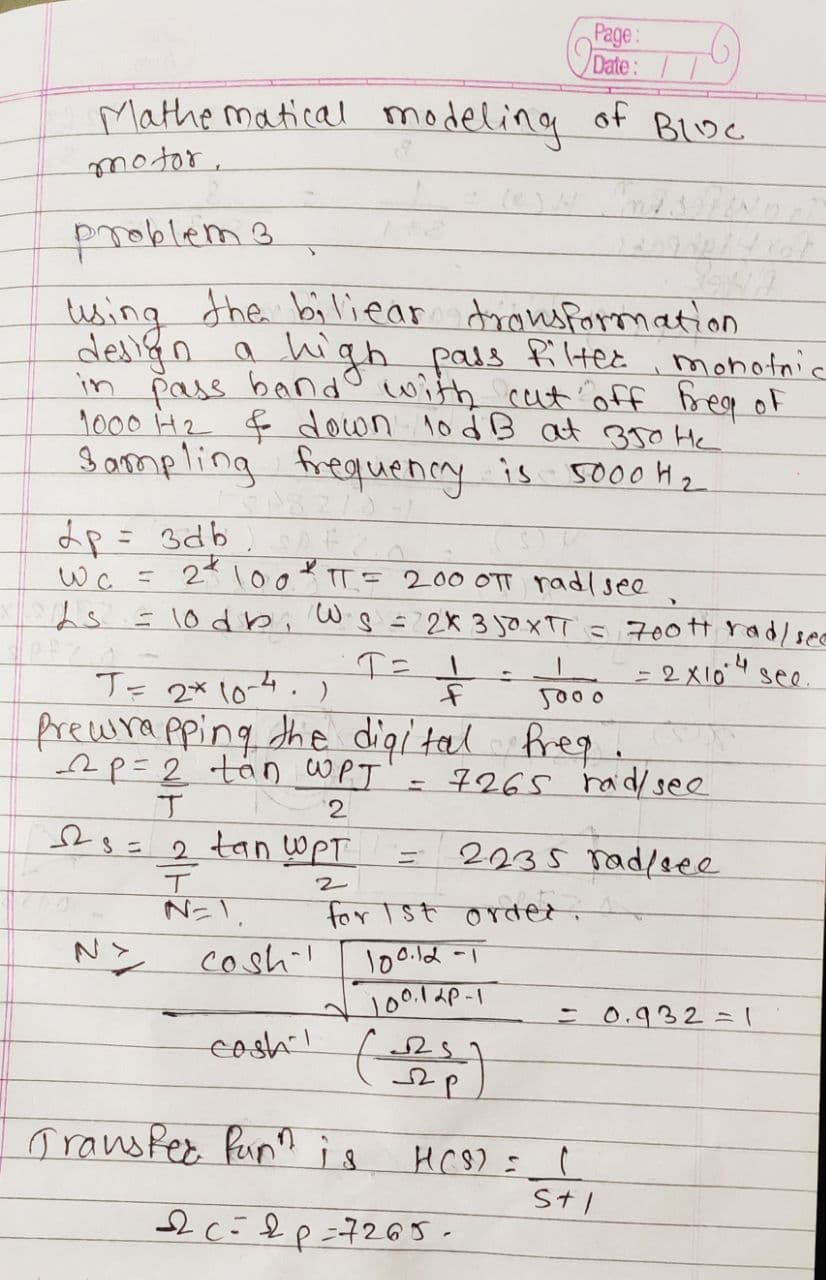 Page:
Date: / /
Mathematical modeling of BLDC
motor.
problem 3
using the biliear transformation
design a high pass filter, monotnic
in pass band with cut off freq of
1000 Hz & down 10 dB at 350 Hz
Sampling frequency is 5000 Hz
αp = 3db.
Wc = 2*100*π = 2000π rad/sec,
αs = 10 db, Ws = 2x350xπ = 700π rad/sec
T = 1/f = 1/5000 = 2x10⁻⁴ sec.
T = 2*10⁻⁴.,
Prewrapping the digital freq.
Ωp = 2/T tan WPT/2 = 7265 rad/sec
Ωs = 2/T tan WPT/2 = 2235 rad/sec
N=1. for 1st order.
N ≥ cosh⁻¹ √(10^0.1α -1 / 10^0.1αp-1) / cosh⁻¹ (Ωs/Ωp) = 0.932 = 1
Transfer funⁿ is H(s) = 1/S+1
Ωc = Ωp = 7265.